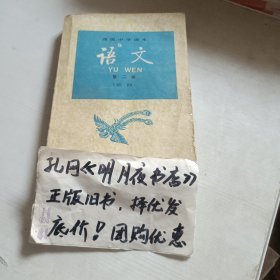 高级中学课本
语文
YU WEN
第二册
孔网《明月夜书店》
正版旧书，择优发
底价！团购优惠